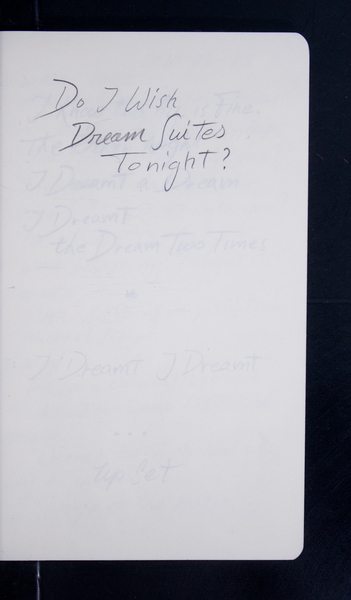 Do I Wish
Dream Suites
Tonight?
I Dreamt a Dream
I Dreamt
the Dream Two Times
I Dreamt I Dreamt